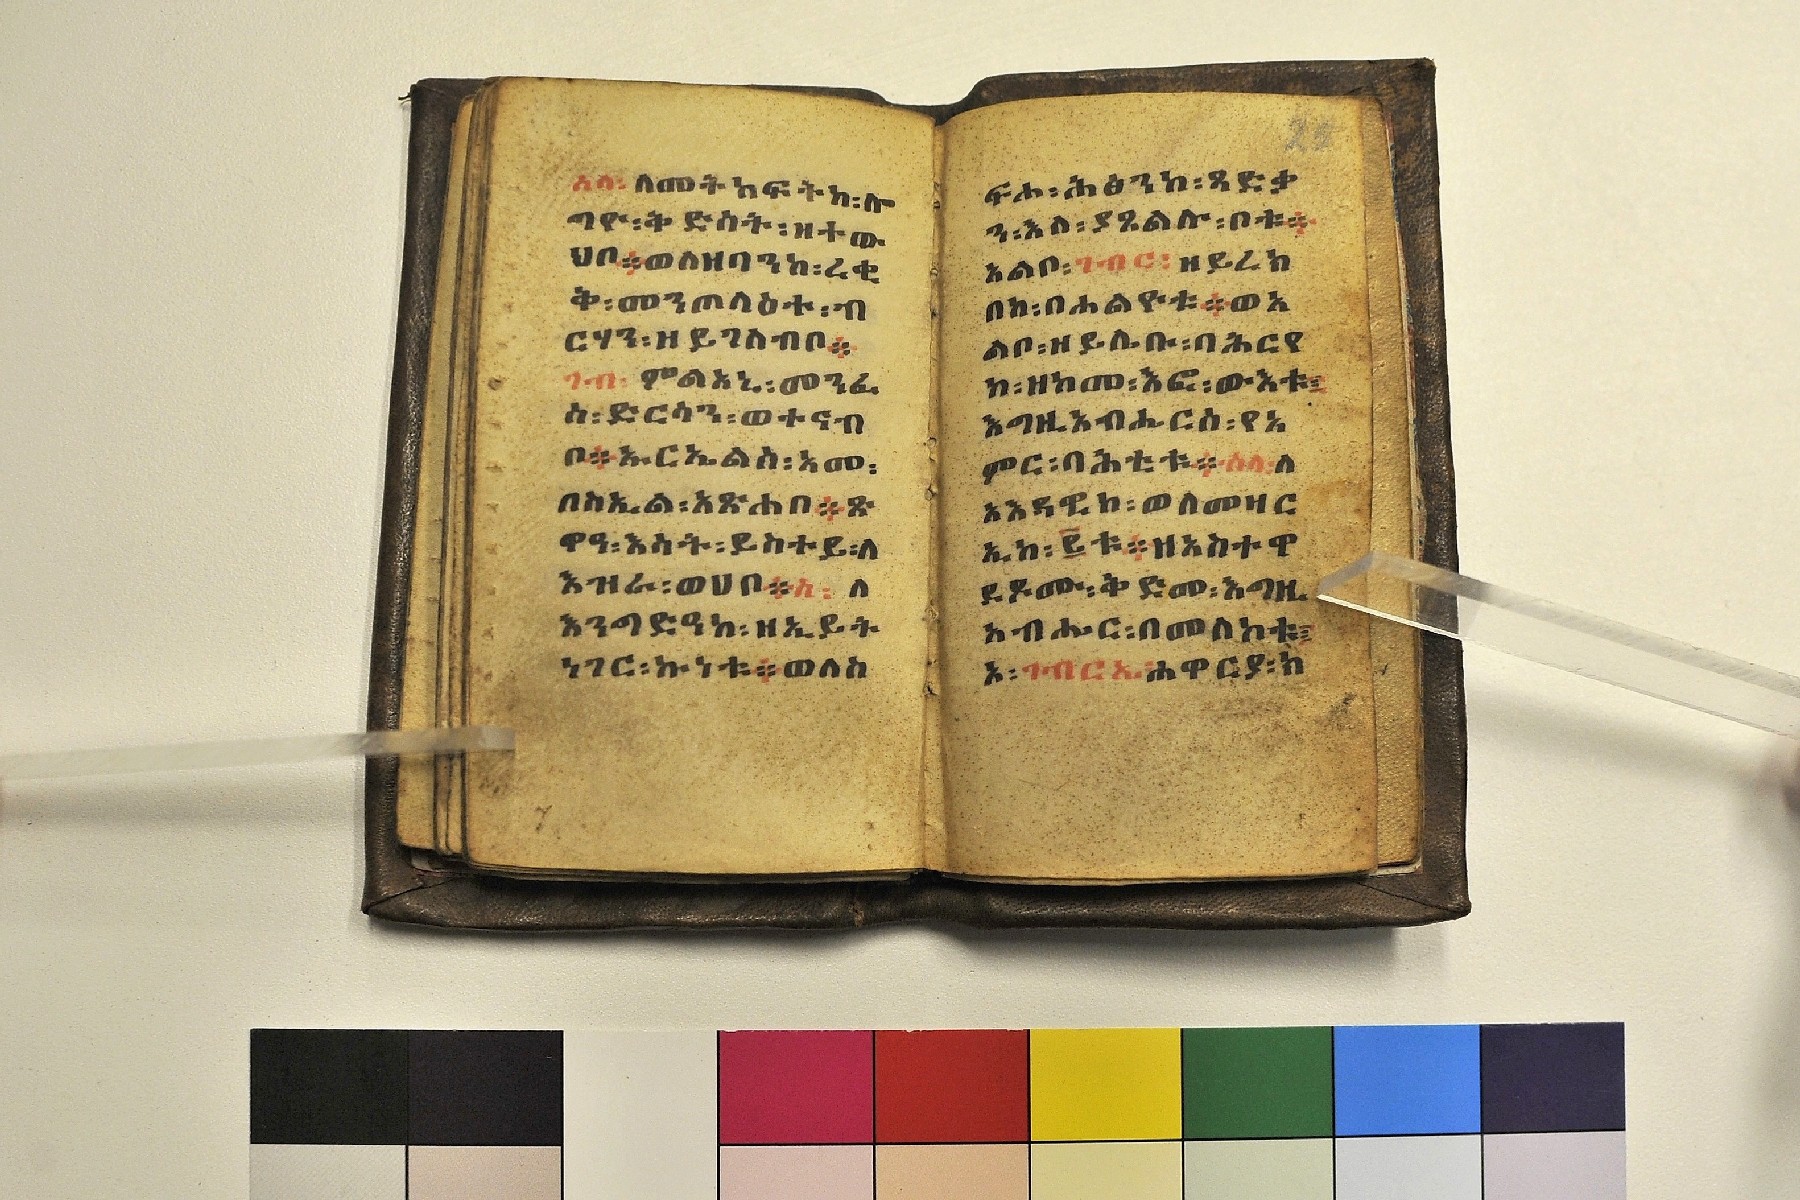 ሰላ፡ ለመትከፍትከ፡ ሎ
ጣዊ፡ ቅድስት፡ ዘተው
ህቦ። ወለዘባንከ፡ ረቂ
ቅ፡ መንጦላዕተ፡ ብ
ርሃን፡ ዘይገለብቦ።
ገብ፡ ምልአኒ፡ መንፈ
ስ፡ ድርሳን፡ ወተናብ
ቦ። ኡርኤልስ፡ አመ፡
በስኢል፡ አጽሐበ። ጽ
ዋዓ፡ እሳት፡ ይስተይ፡ ለ
እዝራ፡ ወሀቦ። ሰ፡ ለ
እንግድዓከ፡ ዘኢይት
ነገር፡ ኩነቱ። ወለስ
ፍሐ፡ ሕፅንከ፡ ጻድቃ
ን፡ እለ፡ ያጼልሉ፡ ቦቱ።
አልቦ፡ ገብር፡ ዘይረክ
በከ፡ በሐልዮቱ። ወአ
ልቦ፡ ዘይሌቡ፡ ባሕርየ
ከ፡ ዘከመ፡ እፎ፡ ውእቱ።
እግዚአብሔርስ፡ የአ
ምር፡ ባሕቲቱ። ሰላ፡ ለ
አእዳዊከ፡ ወለመዘር
ኢከ፡ ፪ቱ። ዘአስተዋ
ደዶሙ፡ ቅድመ፡ እግዚ
አብሔር፡ በመለኮቱ።
እ፡ ገብርኤ፡ ሐዋርያ፡ ከ